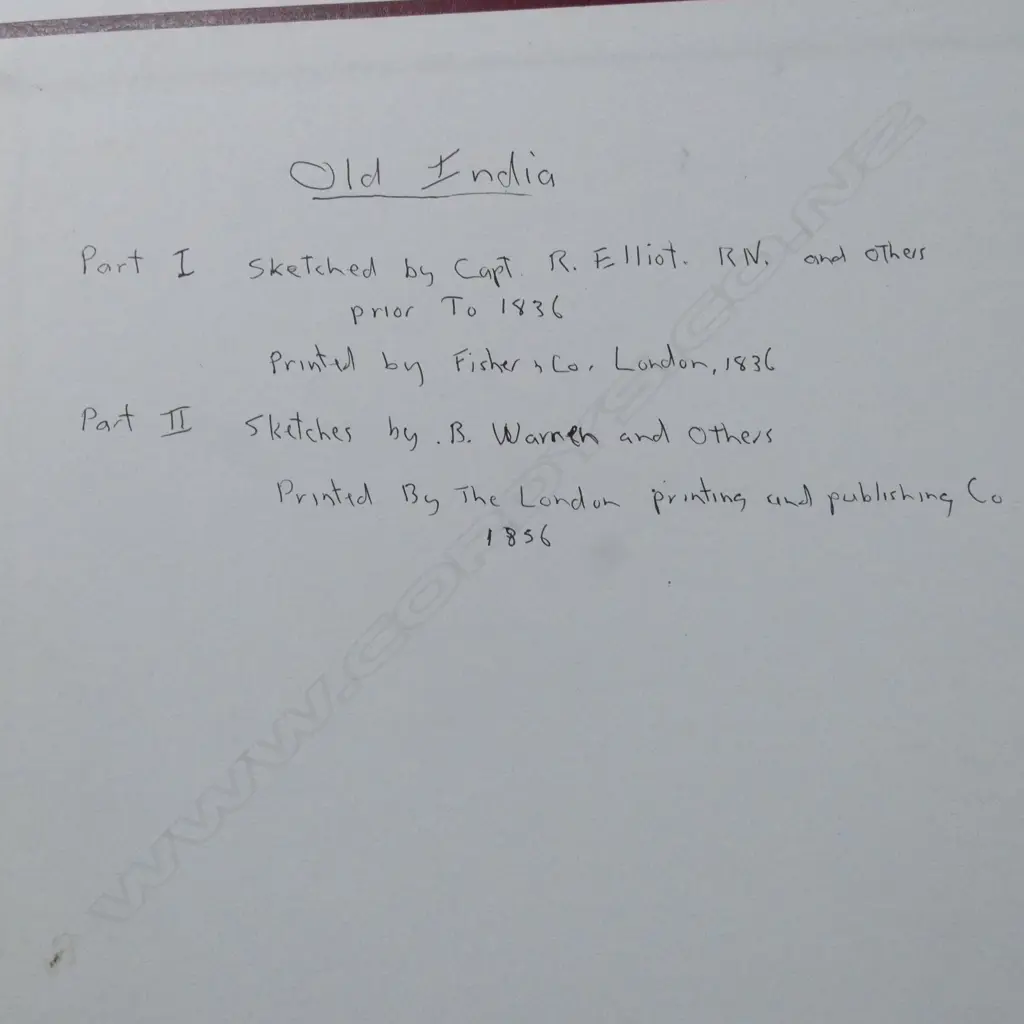 Old India
Part I Sketched by Capt. R. Elliot. RN. and others
prior To 1836
Printed by Fisher & Co. London, 1836
Part II Sketches by B. Warren and others
Printed By The London printing and publishing Co
1856